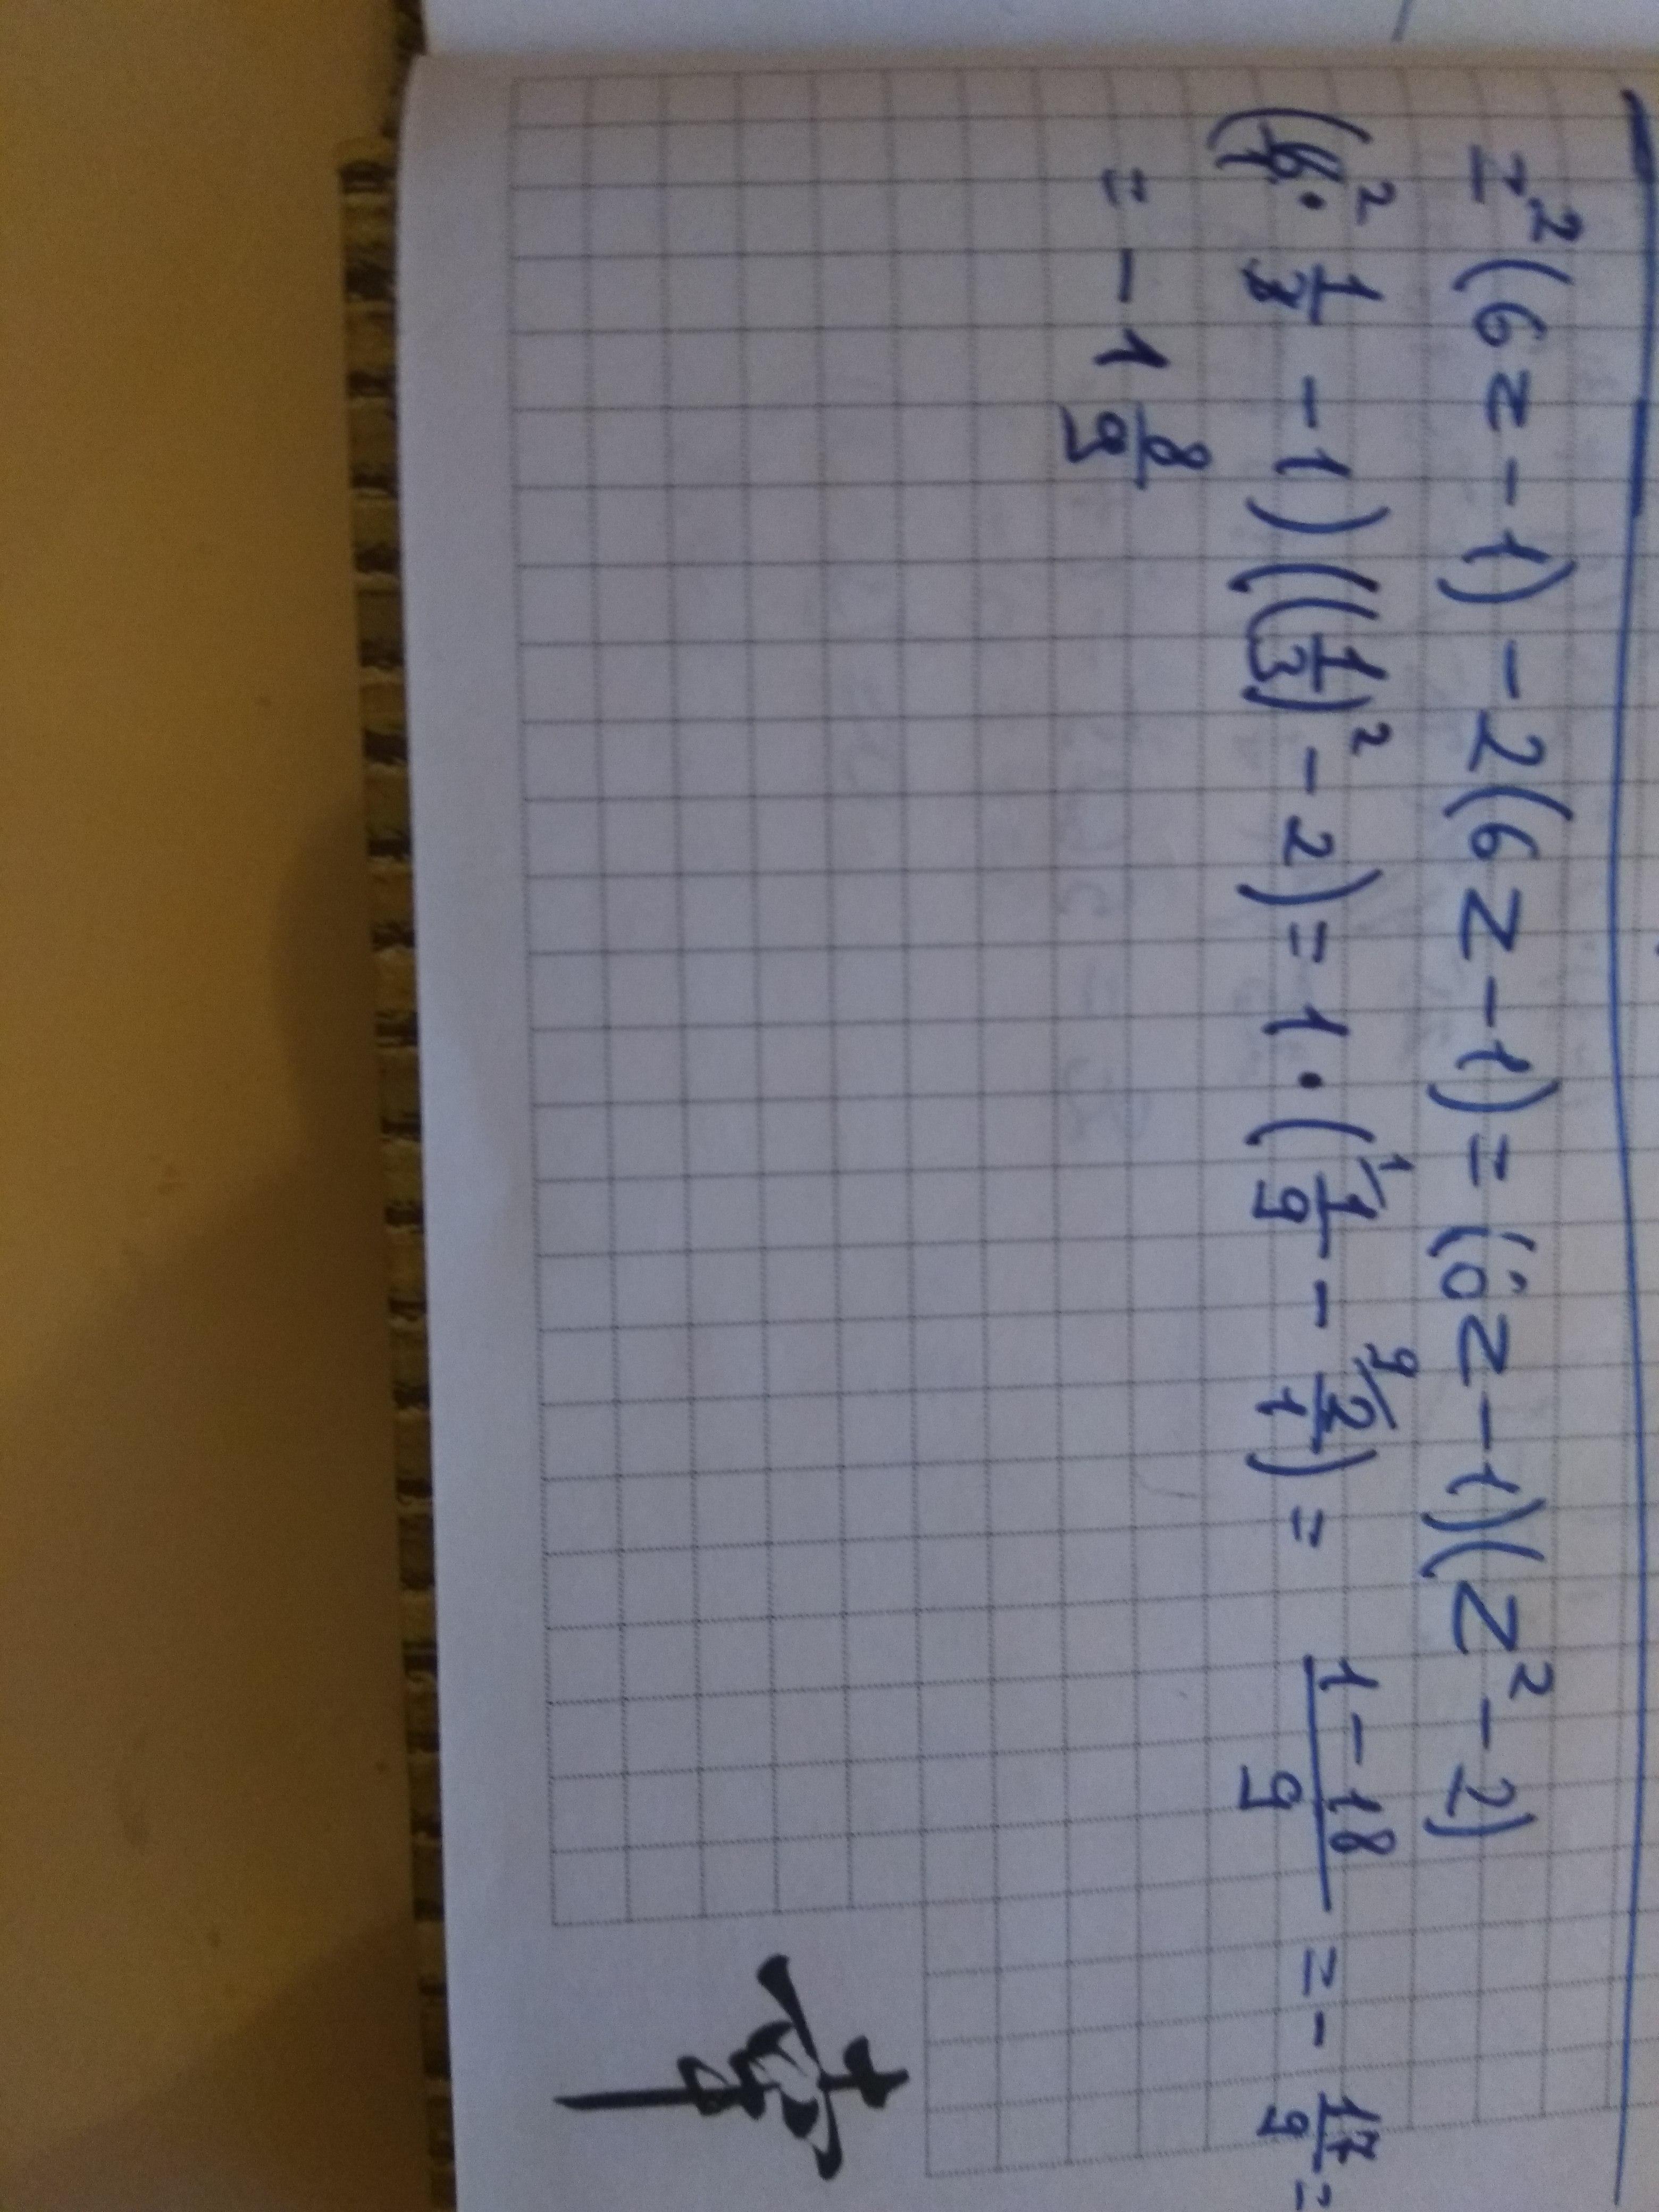 z²(6z-1)-2(6z-1)=(6z-1)(z²-2)
(6²/1·1/3-1)((1/3)²-2)=1·(¹/1/9-⁹/2/1)=(1-18)/9=-17/9=
=-1 8/9